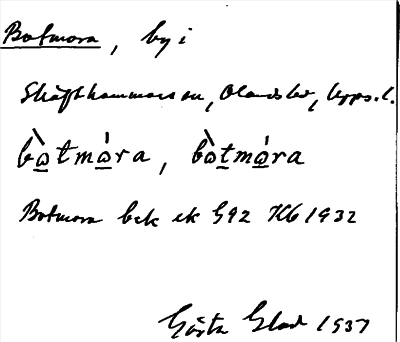 Botmora, by i
Skäfthammars sn, Olands hd, Upps. l.
bòtmóra, bòtmóra
Botmora bek ek G92 Kb 1932
Gösta Glad 1937